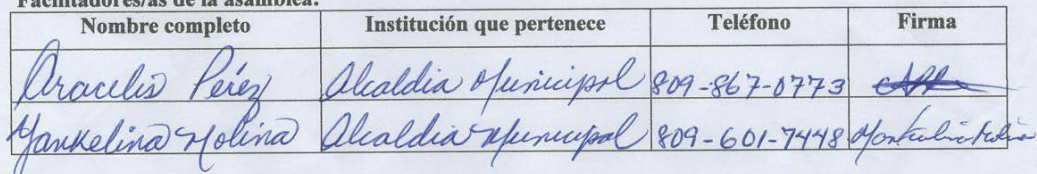 Facilitadores/as de la asamblea:
Nombre completo Institución que pertenece Teléfono Firma
Aracelis Pérez Alcaldia Municipal 809-867-0773
Yankelina Molina Alcaldia Municipal 809-601-7448 Yankelina Molina